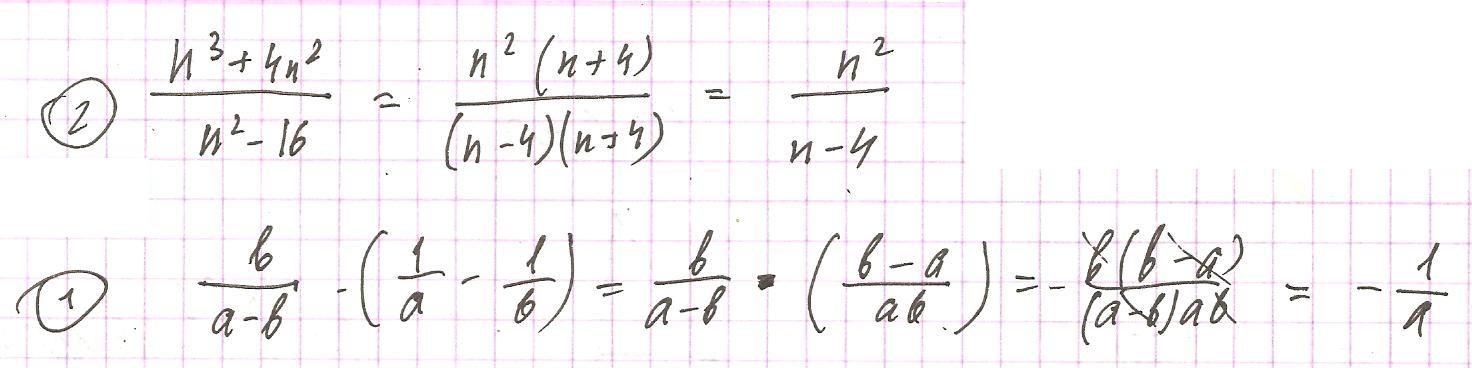 ② (n³+4n²)/(n²-16) = (n²(n+4))/((n-4)(n+4)) = n²/(n-4)
① b/(a-b) · (1/a - 1/b) = b/(a-b) · ((b-a)/(ab)) = - (b(b-a))/((a-b)ab) = - 1/a